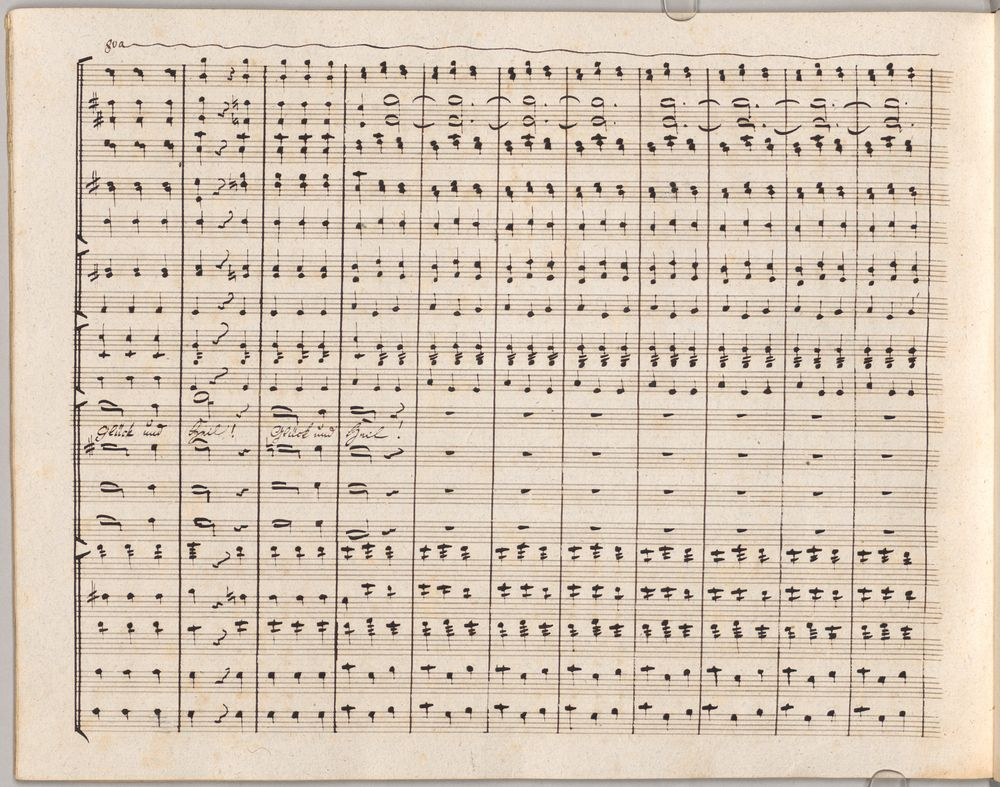 8va
Glück und Heil! Glück und Heil!